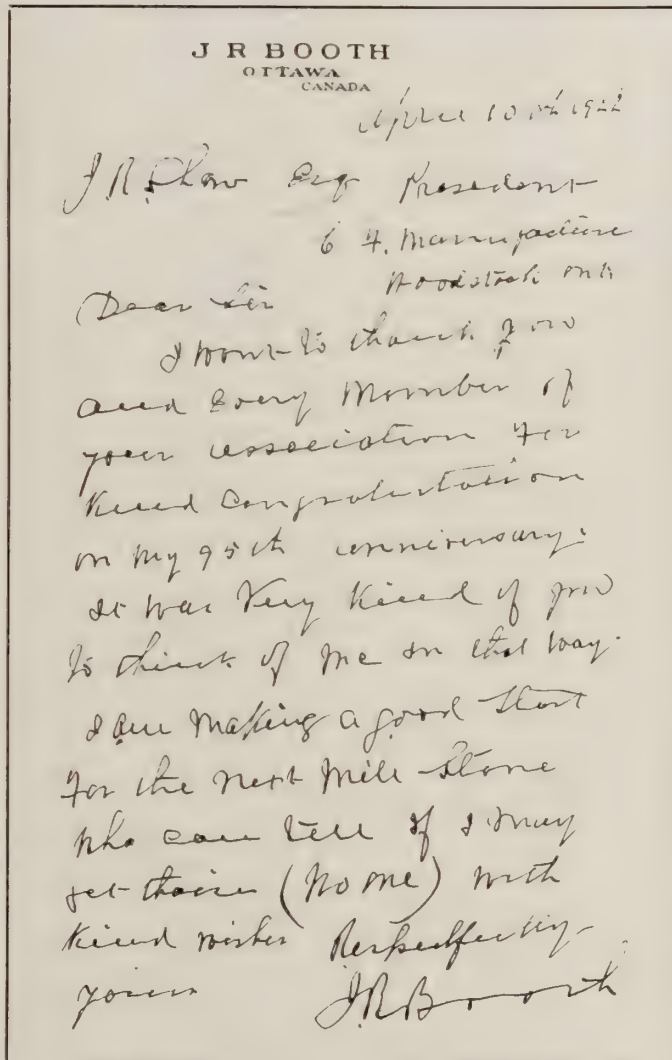 J R BOOTH
OTTAWA
CANADA
April 10th 1922
J R Shaw Esq President
Manufacture
Woodstock Ont
Dear Sir
I want to thank you
and Every Member of
your association For
Kind Congratulation
on My 95th anniversary.
It was Very Kind of you
to think of Me in that way.
I am Making a good Start
For the next Mile Stone
Who can tell if I may
get there (No one) With
Kind wishes Respectfully
yours J.R.Booth